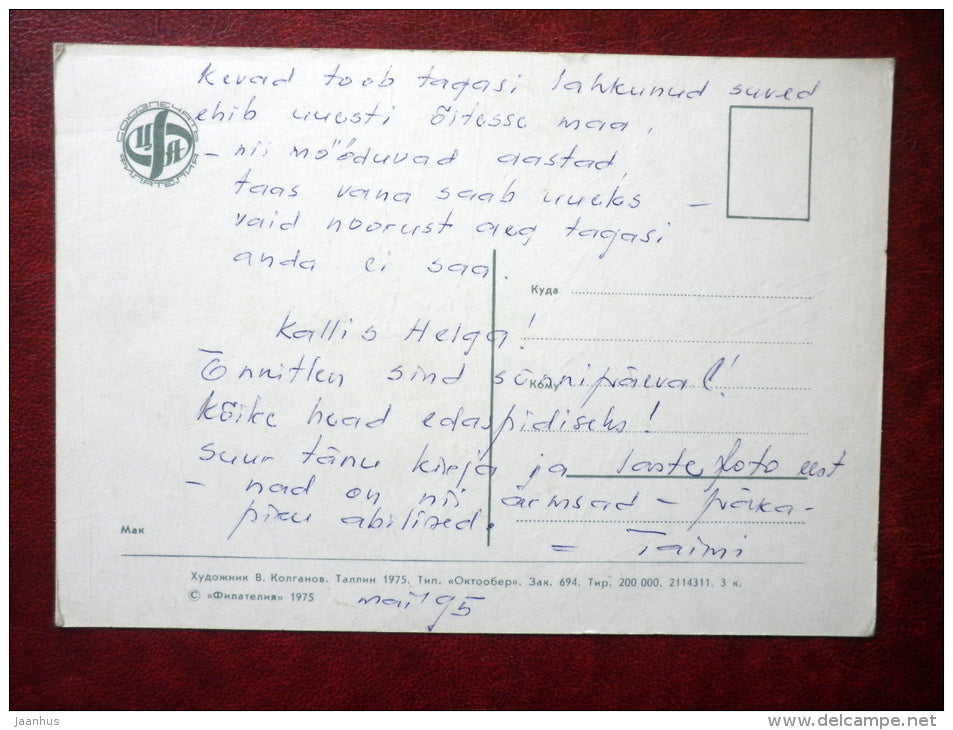 Kevad toob tagasi lahkunud suved
ehib uuesti õitesse maa,
- nii mööduvad aastad,
taas vana saab uueks -
vaid noorust aeg tagasi
anda ei saa.
Kallis Helga!
Õnnitlen sind sünnipäeval!
Kõike head edaspidiseks!
Suur tänu kirja ja laste foto eest
- nad on nii armsad - päka-
piku abilised.
= Taimi
mai 95
СОЮЗПЕЧАТЬ
ЦФА
ФИЛАТЕЛИЯ
Куда
Кому
Мак
Художник В. Колганов. Таллин 1975. Тип. «Октообер». Зак. 694. Тир. 200 000, 2114311. 3 к.
© «Филателия» 1975
Jaanhus
www.delcampe.net